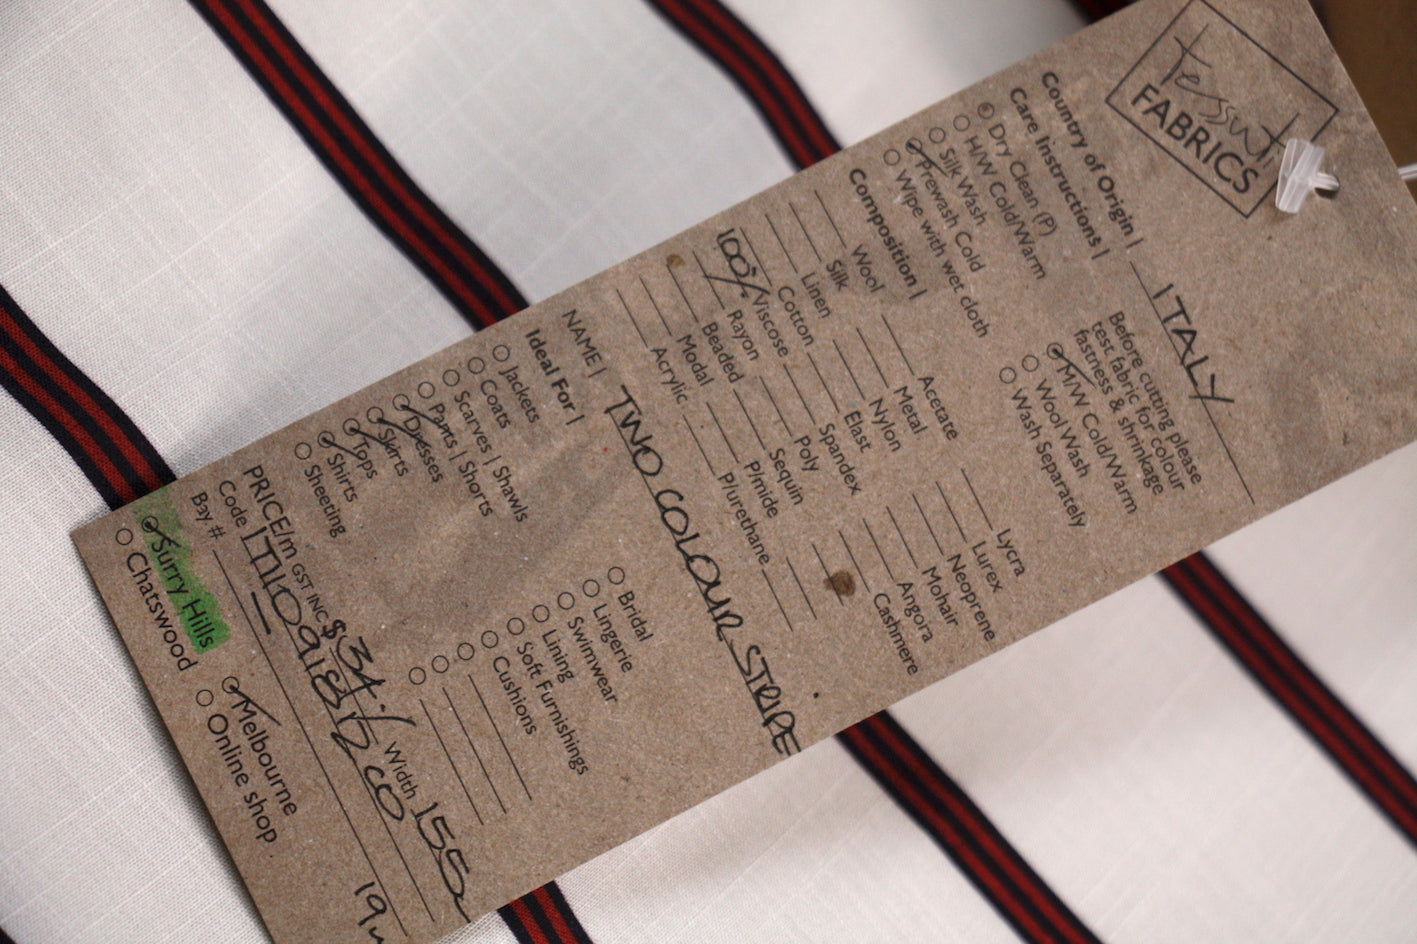 tessuti
FABRICS
Country of Origin | ITALY
Care Instructions |
Dry Clean (P)
H/W Cold/Warm
Silk Wash
Prewash Cold
Wipe with wet cloth
Before cutting please
test fabric for colour
fastness & shrinkage
M/W Cold/Warm
Wool Wash
Wash Separately
Composition |
Wool
Silk
Linen
Cotton
100% Viscose
Rayon
Beaded
Modal
Acrylic
Acetate
Metal
Nylon
Elast
Spandex
Poly
Sequin
P/mide
P/urethane
Lycra
Lurex
Neoprene
Mohair
Angora
Cashmere
NAME | TWO COLOUR STRIPE
Ideal For |
Jackets
Coats
Scarves | Shawls
Pants | Shorts
Dresses
Skirts
Tops
Shirts
Sheeting
Bridal
Lingerie
Swimwear
Lining
Soft Furnishings
Cushions
PRICE/m GST INC $34 Width 155
Code
Bay #
Surry Hills
Chatswood
Melbourne
Online shop